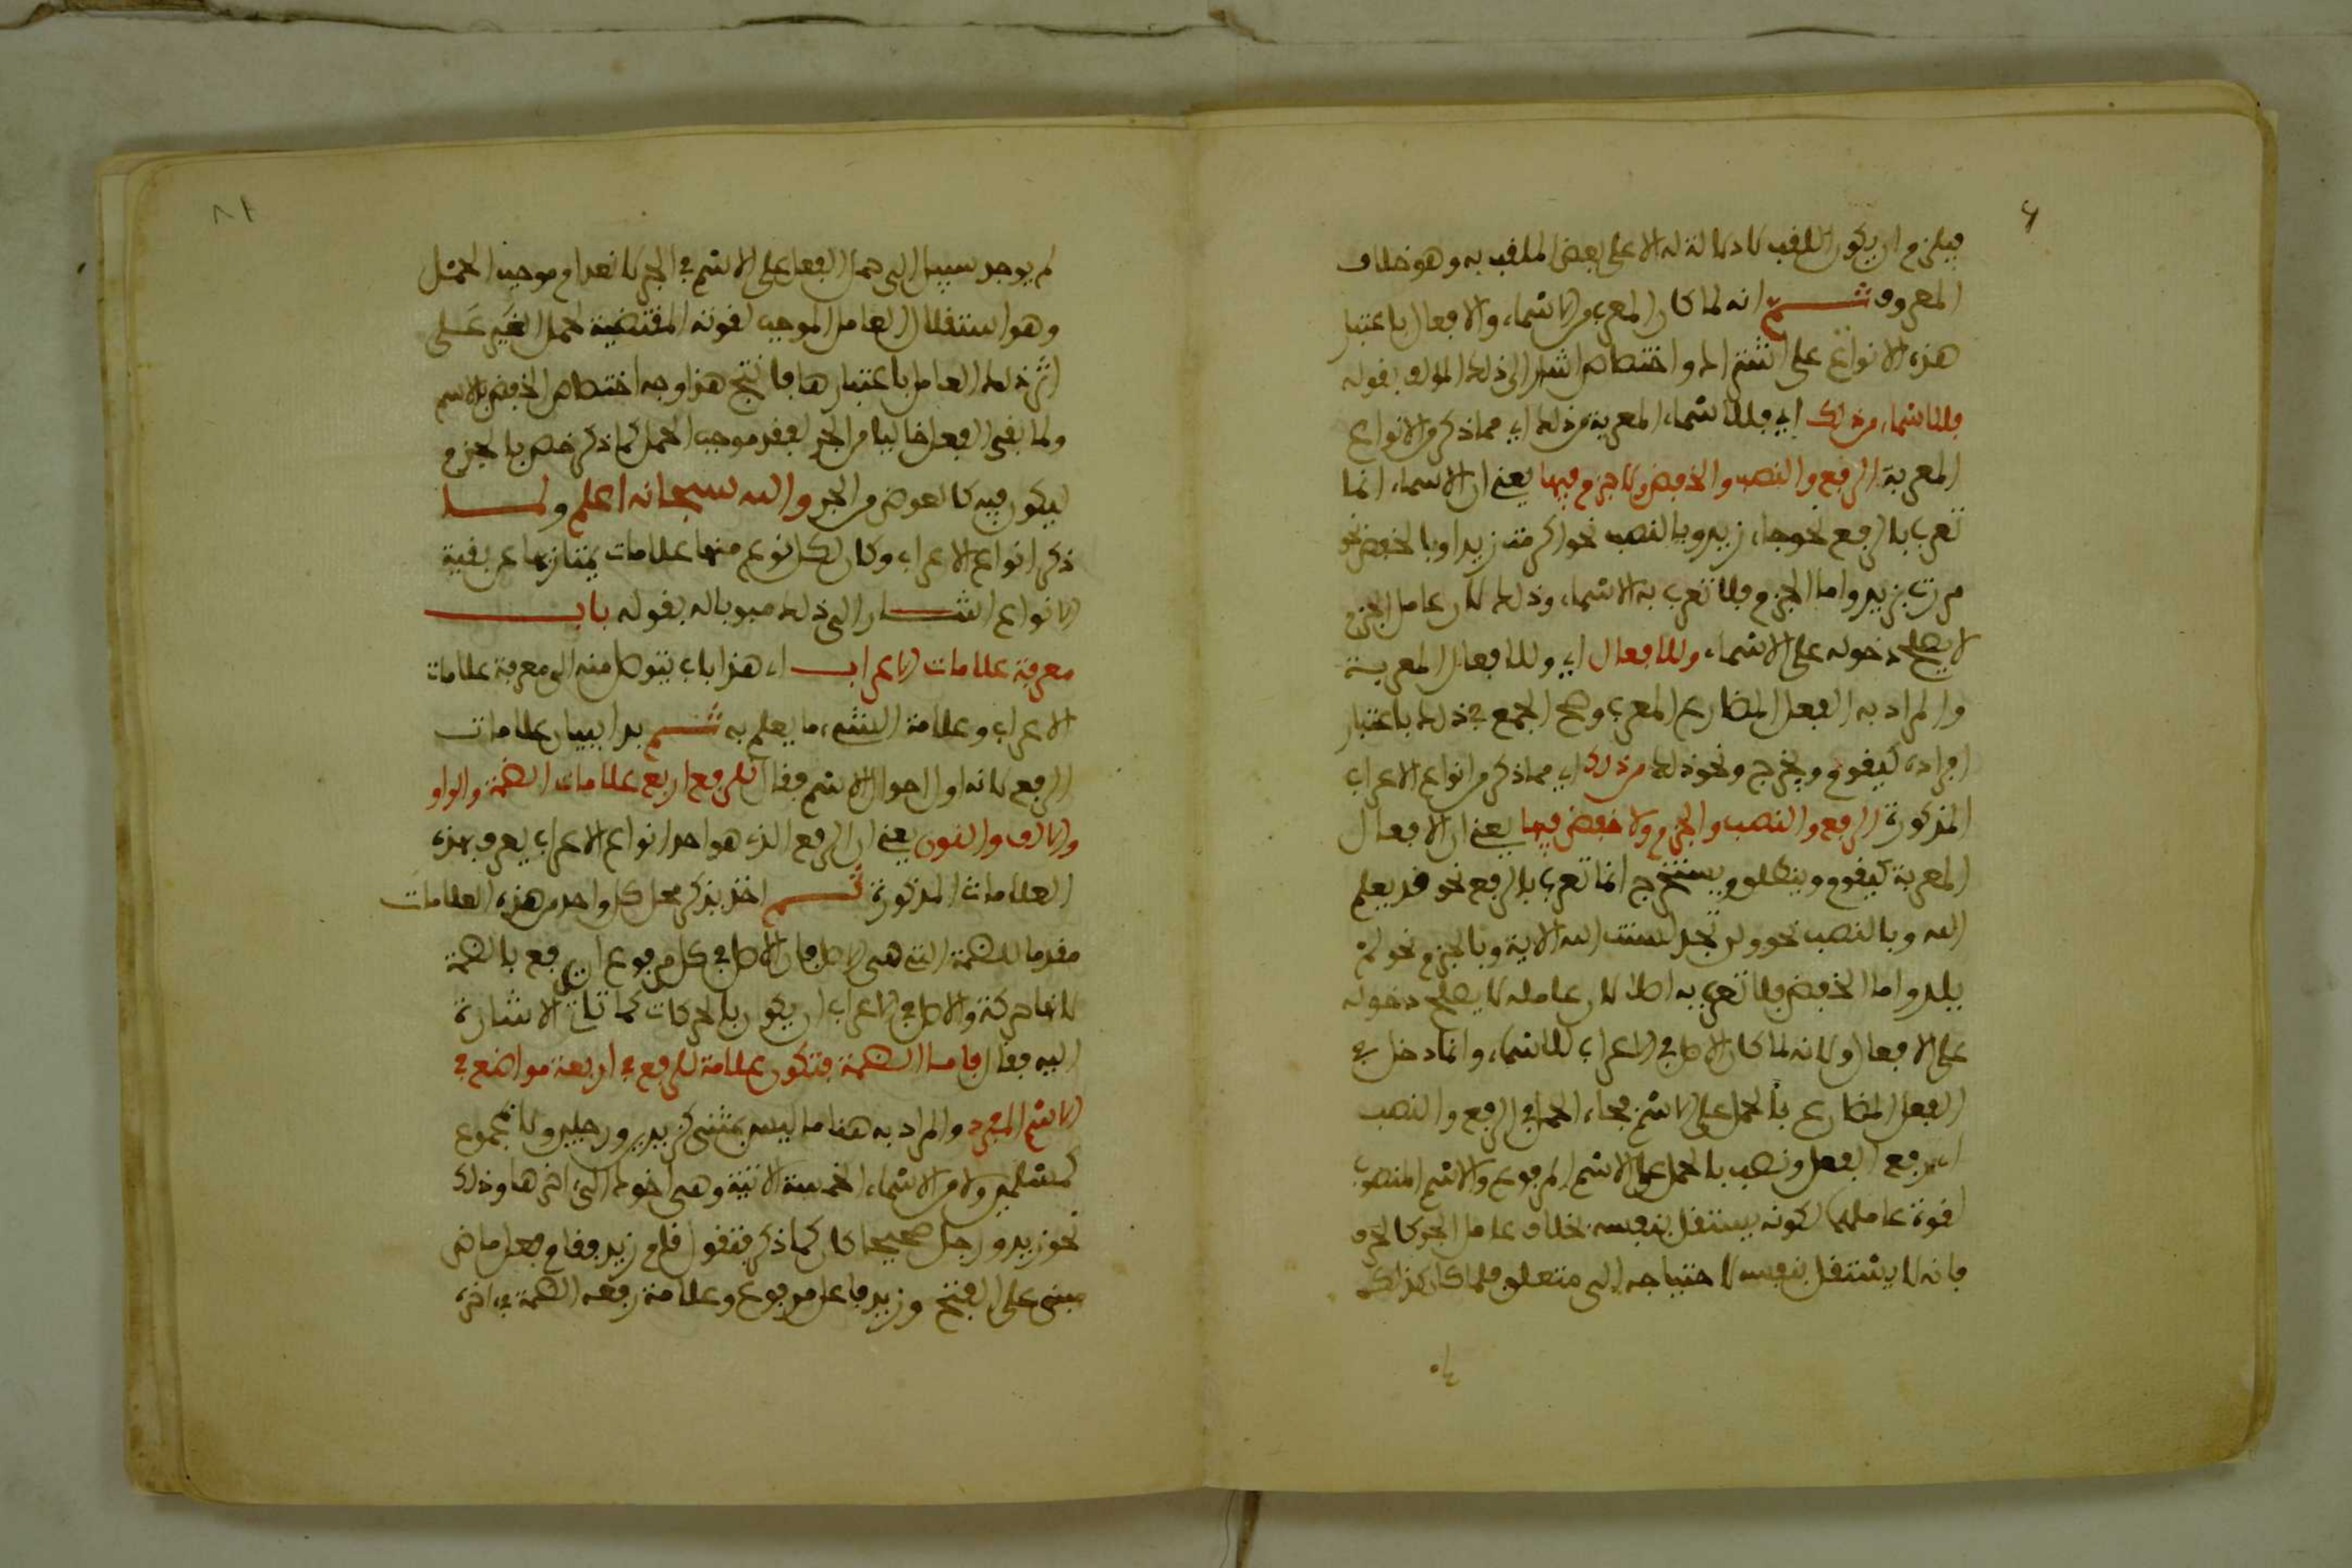 فيلزم ان يكون اللقب لا دلالة له الا على بعض الملقب به وهو خلاف
المعروف ثم انه لما كان المعرب من الاسماء والافعال باعتبار
هذه الانواع على اشتراك واختصاص اشار الى ذلك المؤلف بقوله
فللاسماء من ذلك اي فللاسماء المعربة من ذلك اي مما ذكر من الانواع
المعربة الرفع والنصب والخفض ولا جزم فيها يعني ان الاسماء انما
تعرب بالرفع نحو جاء زيد وبالنصب نحو اكرمت زيدا وبالخفض نحو
مررت بزيد واما الجزم فلا تعرب به الاسماء وذلك لان عامل الجزم
لا يصلح دخوله على الاسماء وللافعال اي وللافعال المعربة
والمراد به الفعل المضارع المعرب وصح الجمع في ذلك باعتبار
افراده كيقوم ويخرج ونحو ذلك من ذلك اي مما ذكر من انواع الاعراب
المذكورة الرفع والنصب والجزم ولا خفض فيها يعني ان الافعال
المعربة كيقوم وينطلق ويستخرج انما تعرب بالرفع نحو قد يعلم
الله وبالنصب نحو ولن تجد لسنت الله الاية وبالجزم نحو لم
يلد واما الخفض فلا تعرب به اصلا لان عامله لا يصلح دخوله
على الافعال ولانه لما كان الاصل في الاعراب للاسماء وانما دخل في
الفعل المضارع بالحمل على الاسم فجاء الحمل في الرفع والنصب
اي رفع الفعل ونصب بالحمل على الاسم المرفوع والاسم المنصوب
لقوة عاملهما لكونه يستقل بنفسه بخلاف عامل الجر كالحرف
فانه لا يستقل بنفسه لاحتياجه الى متعلق فلما كان كذلك
لم يوجد سبيل الى حمل الفعل على الاسم في الجر لانعدام موجب الحمل
وهو استقلال العامل الموجب لقوته المقتضية لحمل الغير على
اثر ذلك العامل باعتبارها فانتج هذا وجه اختصاص الخفض بالاسم
ولما بقي الفعل خاليا من الجر لفقد موجب الحمل كما ذكر خص بالجزم
ليكون فيه كالعوض من الجر والله سبحانه اعلم ولما
ذكر انواع الاعراب وكان لكل نوع منها علامات يمتاز بها عن بقية
الانواع اشار الى ذلك مبوبا له بقوله باب
معرفة علامات الاعراب اي هذا باب يتوصل منه الى معرفة علامات
الاعراب وعلامة الشيء ما يعلم به ثم بدا ببيان علامات
الرفع لانه اول احوال الاسم فقال للرفع اربع علامات الضمة والواو
والالف والنون يعني ان الرفع الذي هو احد انواع الاعراب يعرف بهذه
العلامات المذكورة ثم اخذ يذكر محل كل واحد من هذه العلامات
مقدما للضمة التي هي الاصل فان الاصل في كل مرفوع ان يرفع بالضمة
لانها حركة والاصل في الاعراب ان يكون بالحركات كما تاتي الاشارة
اليه فقال فاما الضمة فتكون علامة للرفع في اربعة مواضع في
الاسم المفرد والمراد به هنا ما ليس بمثنى كزيدين ورجلين ولا مجموع
كمسلمين ولا من الاسماء الخمسة الاتية وهي اخوك الى اخرها وذلك
نحو زيد ورجل صحيحا كان كما ذكر فتقول قام زيد فقام فعل ماض
مبني على الفتح وزيد فاعل مرفوع وعلامة رفعه الضمة في اخره